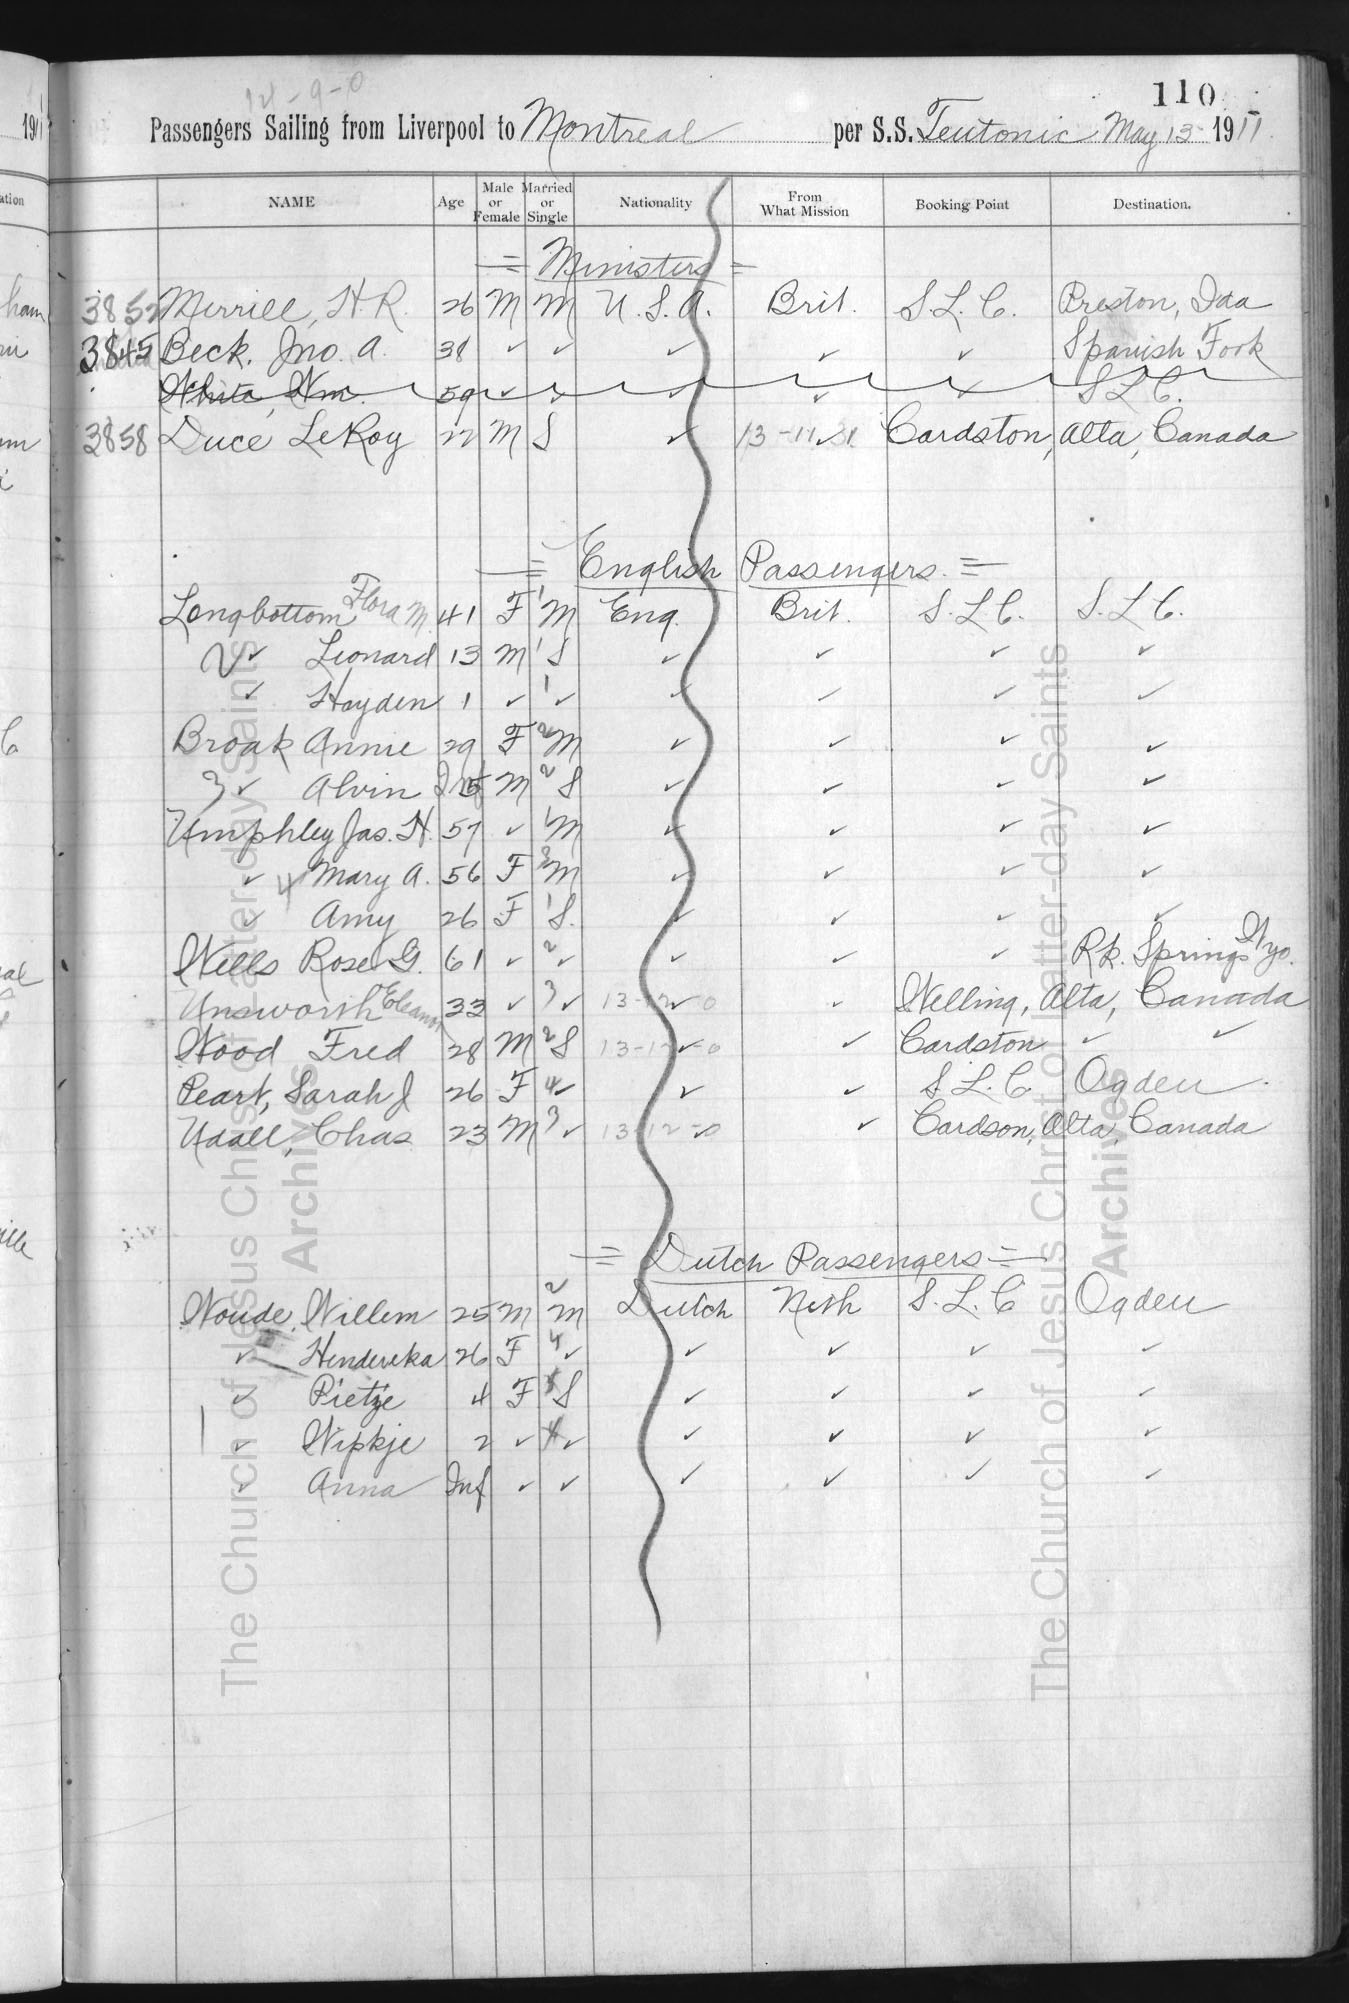 14-9-0
110
Passengers Sailing from Liverpool to Montreal per S.S. Teutonic May 13 1911
NAME Age Male or Female Married or Single Nationality From What Mission Booking Point Destination.
= Ministers =
3852 Merrill, H. R. 26 M M U. S. A. Brit. S. L. C. Preston, Ida
3845 Beck, Jno. A. 38 ✓ ✓ ✓ ✓ ✓ Spanish Fork
White, Wm. 59 ✓ ✓ ✓ ✓ ✓ S L C.
3858 Duce LeRoy 22 M S ✓ ✓ Cardston, Alta, Canada
= English Passengers =
Longbottom Flora M. 41 F 1 M Eng. Brit. S. L. C. S. L. C.
2 ✓ Leonard 13 M 1 S ✓ ✓ ✓ ✓
✓ Hayden 1 ✓ 1 ✓ ✓ ✓ ✓ ✓
Broak Annie 29 F 2 M ✓ ✓ ✓ ✓
3 ✓ Alvin M 2 S ✓ ✓ ✓ ✓
Umphley Jas. H. 57 ✓ 1 M ✓ ✓ ✓ ✓
✓ 4 Mary A. 56 F 3 M ✓ ✓ ✓ ✓
✓ Amy 26 F 1 S. ✓ ✓ ✓ ✓
Wells Rose G. 61 ✓ 2 ✓ ✓ ✓ ✓ Rk. Springs Wyo.
Unsworth Eleanor 33 ✓ 3 ✓ 13-12-0 ✓ ✓ Welling, Alta, Canada
Wood Fred 28 M 2 S 13-12-0 ✓ ✓ Cardston ✓ ✓
Peart, Sarah J 26 F 4 ✓ ✓ ✓ S. L. C. Ogden
Udall, Chas. 23 M 3 ✓ 13-12-0 ✓ ✓ Cardson, Alta, Canada
= Dutch Passengers =
Woude, Willem 25 M 2 M Dutch Neth S. L. C Ogden
✓ Hendereka 26 F 4 ✓ ✓ ✓ ✓ ✓
✓ Pietje 4 F S ✓ ✓ ✓ ✓
✓ Wipkje 2 ✓ 4 ✓ ✓ ✓ ✓ ✓
✓ Anna Inf ✓ ✓ ✓ ✓ ✓ ✓
The Church of Jesus Christ of Latter-day Saints
Archives
The Church of Jesus Christ of Latter-day Saints
Archives